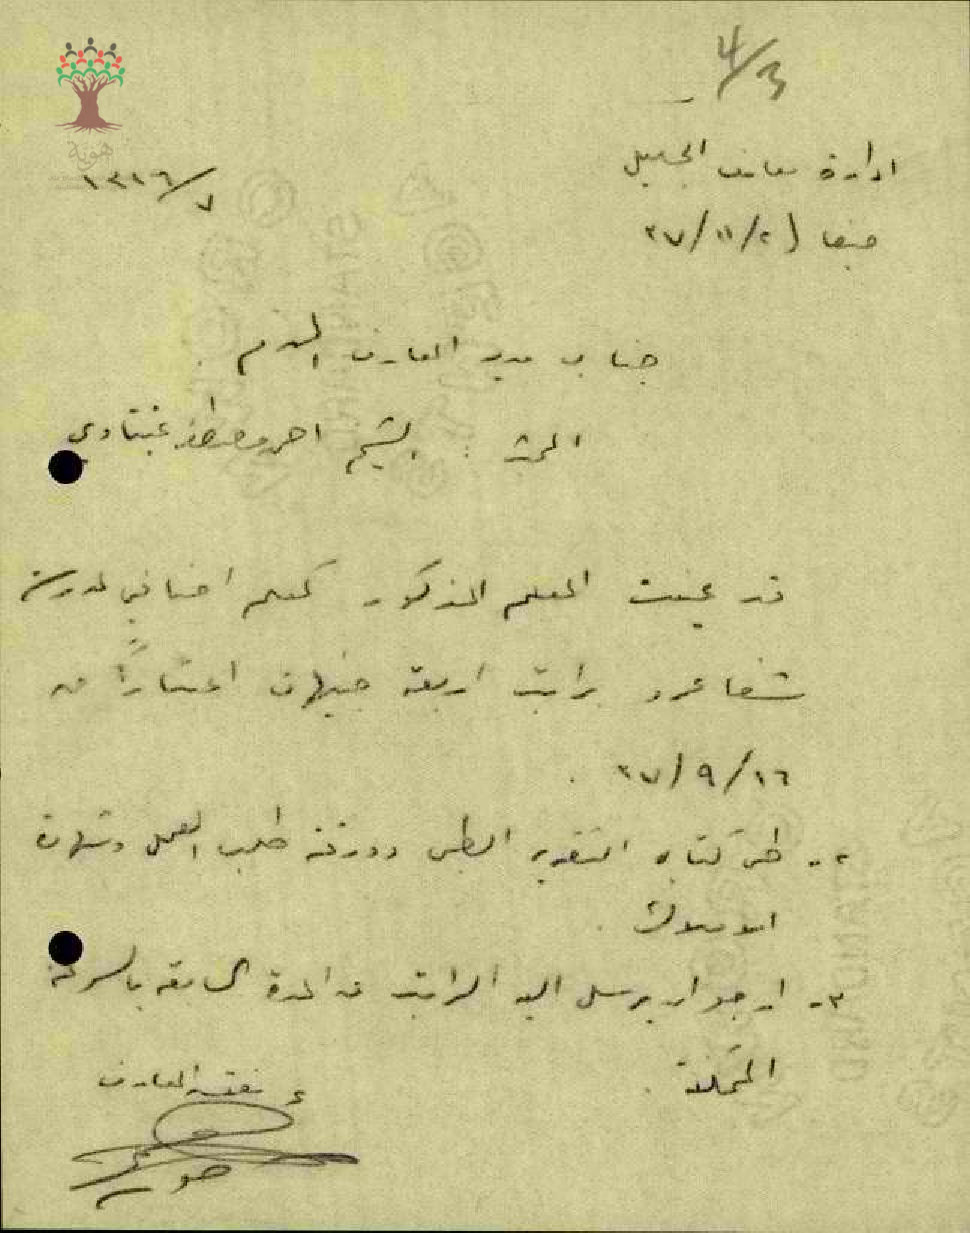 4/3
هوية
ادارة معارف الجليل
١٣١٦/٧
حيفا ٢/١١/٣٧
جناب مدير المعارف المحترم
المبحث : الشيخ احمد مصطفى عبتاوي
قد عينت المعلم المذكور كمعلم اضافي لمدرسة
شفاعمرو براتب اربعة جنيهات اعتباراً من
١٦/٩/٣٧ .
٢- طي كتابه التقرير الطبي وورقة طلب العمل وشهادة
.
٣- ارجو ان يرسل اليه الراتب عن المدة السابقة بالسرعة
الممكنة .
ع مفتش المعارف